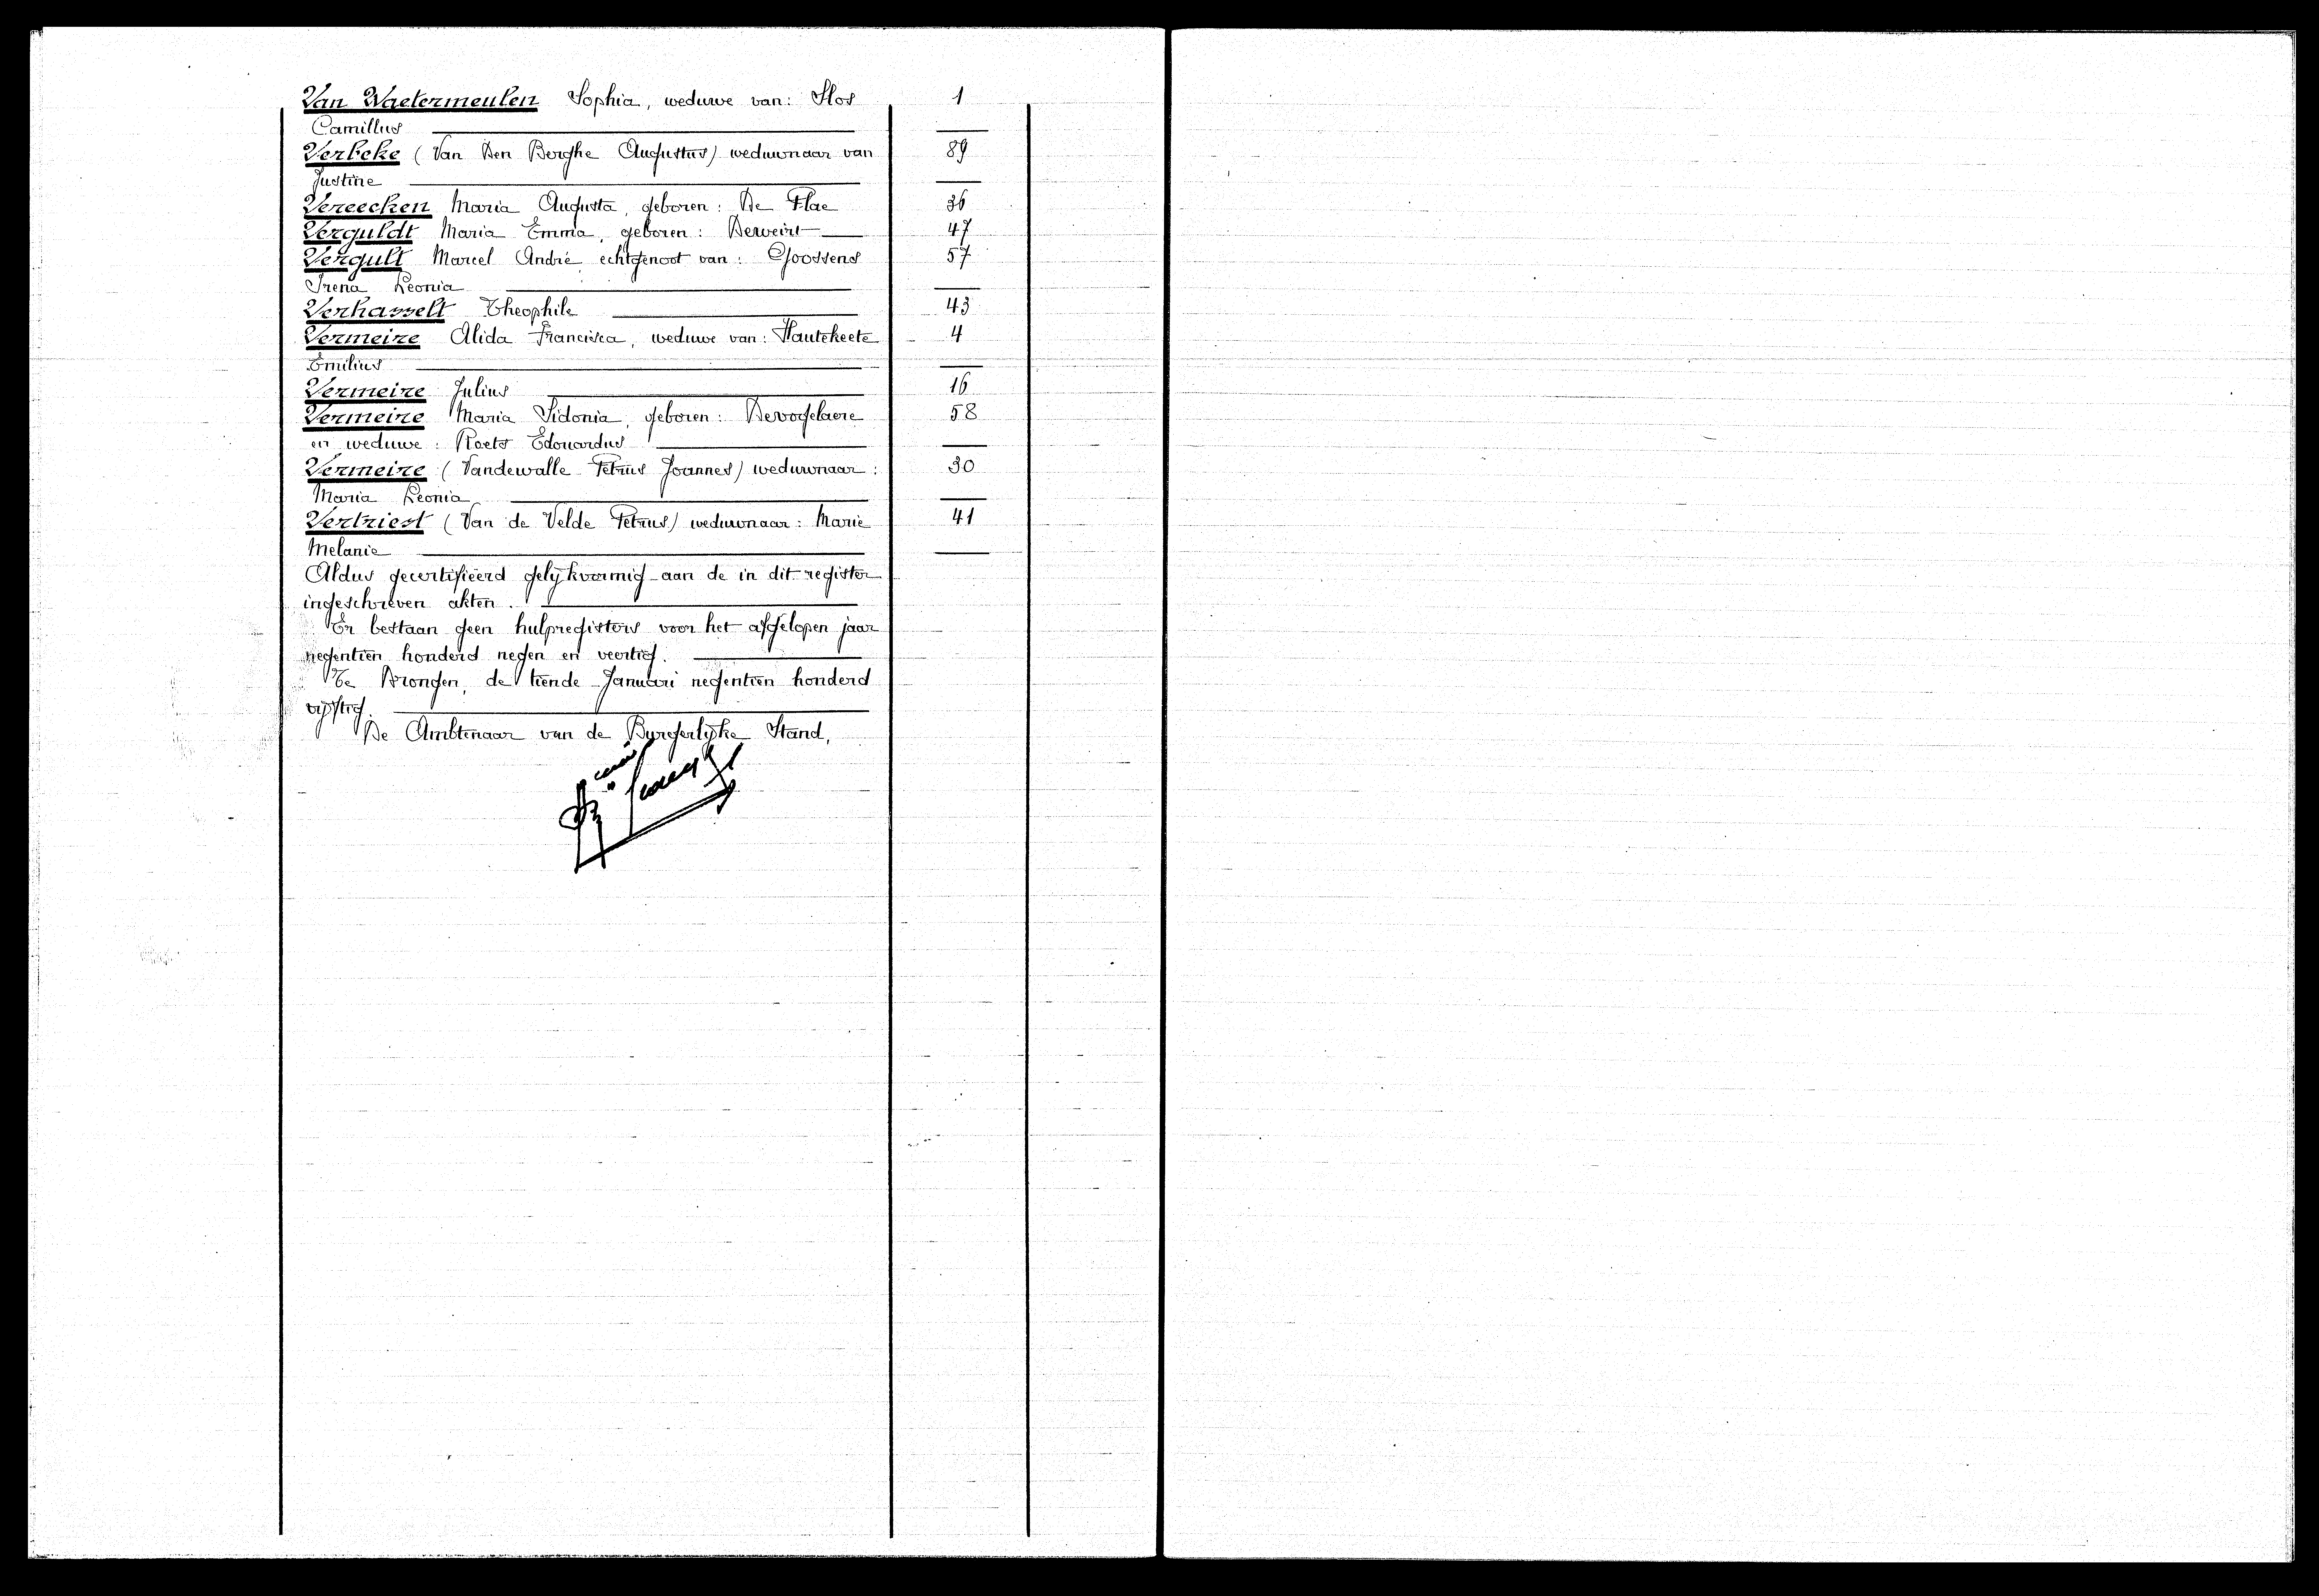 Van Waetermeulen Sophia, weduwe van: Slos 1
Camillus
Verbeke (Van Den Berghe Augustus) weduwnaar van 89
Justine
Vereecken Maria Augusta, geboren: De Vlae 36
Verguldt Maria Emma, geboren: Derveirt 47
Vergult Marcel André echtgenoot van: Goossens 57
Irena Leonia
Verhasselt Theophile 43
Vermeire Alida Francisca, weduwe van: Hautekeete 4
Emilius
Vermeire Julius 16
Vermeire Maria Sidonia, geboren: Devogelaere 58
en weduwe: Roets Edouardus
Vermeire (Vandewalle Petrus Joannes) weduwnaar: 30
Maria Leonia
Vertriest (Van de Velde Petrus) weduwnaar: Marie 41
Melanie
Aldus gecertifieerd gelijkvormig aan de in dit register
ingeschreven akten.
Er bestaan geen hulpregisters voor het afgelopen jaar
negentien honderd negen en veertig.
Te Drongen, de tiende Januari negentien honderd
vijftig.
De Ambtenaar van de Burgerlijke Stand,